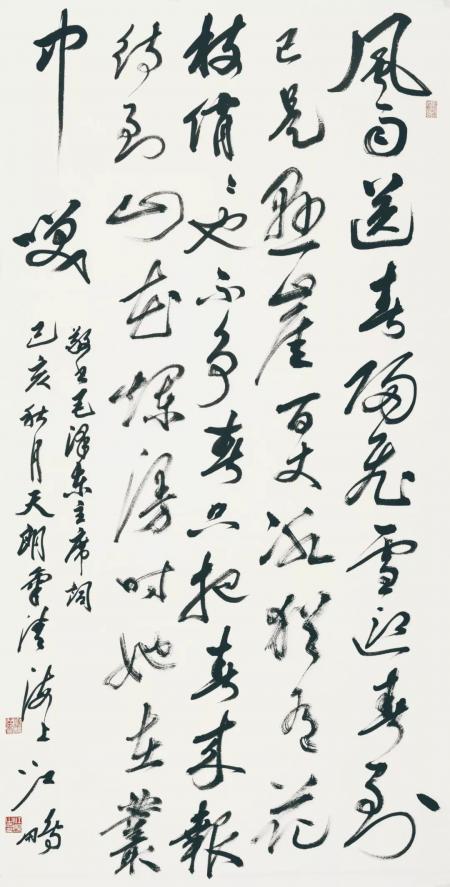 風雨送春歸飛雪迎春到
已是懸崖百丈冰猶有花
枝俏〻也不爭春只把春來報
待到山花爛漫時她在叢
中咲
敬書毛澤東主席詞
己亥秋月天朗氣清海上江鵬